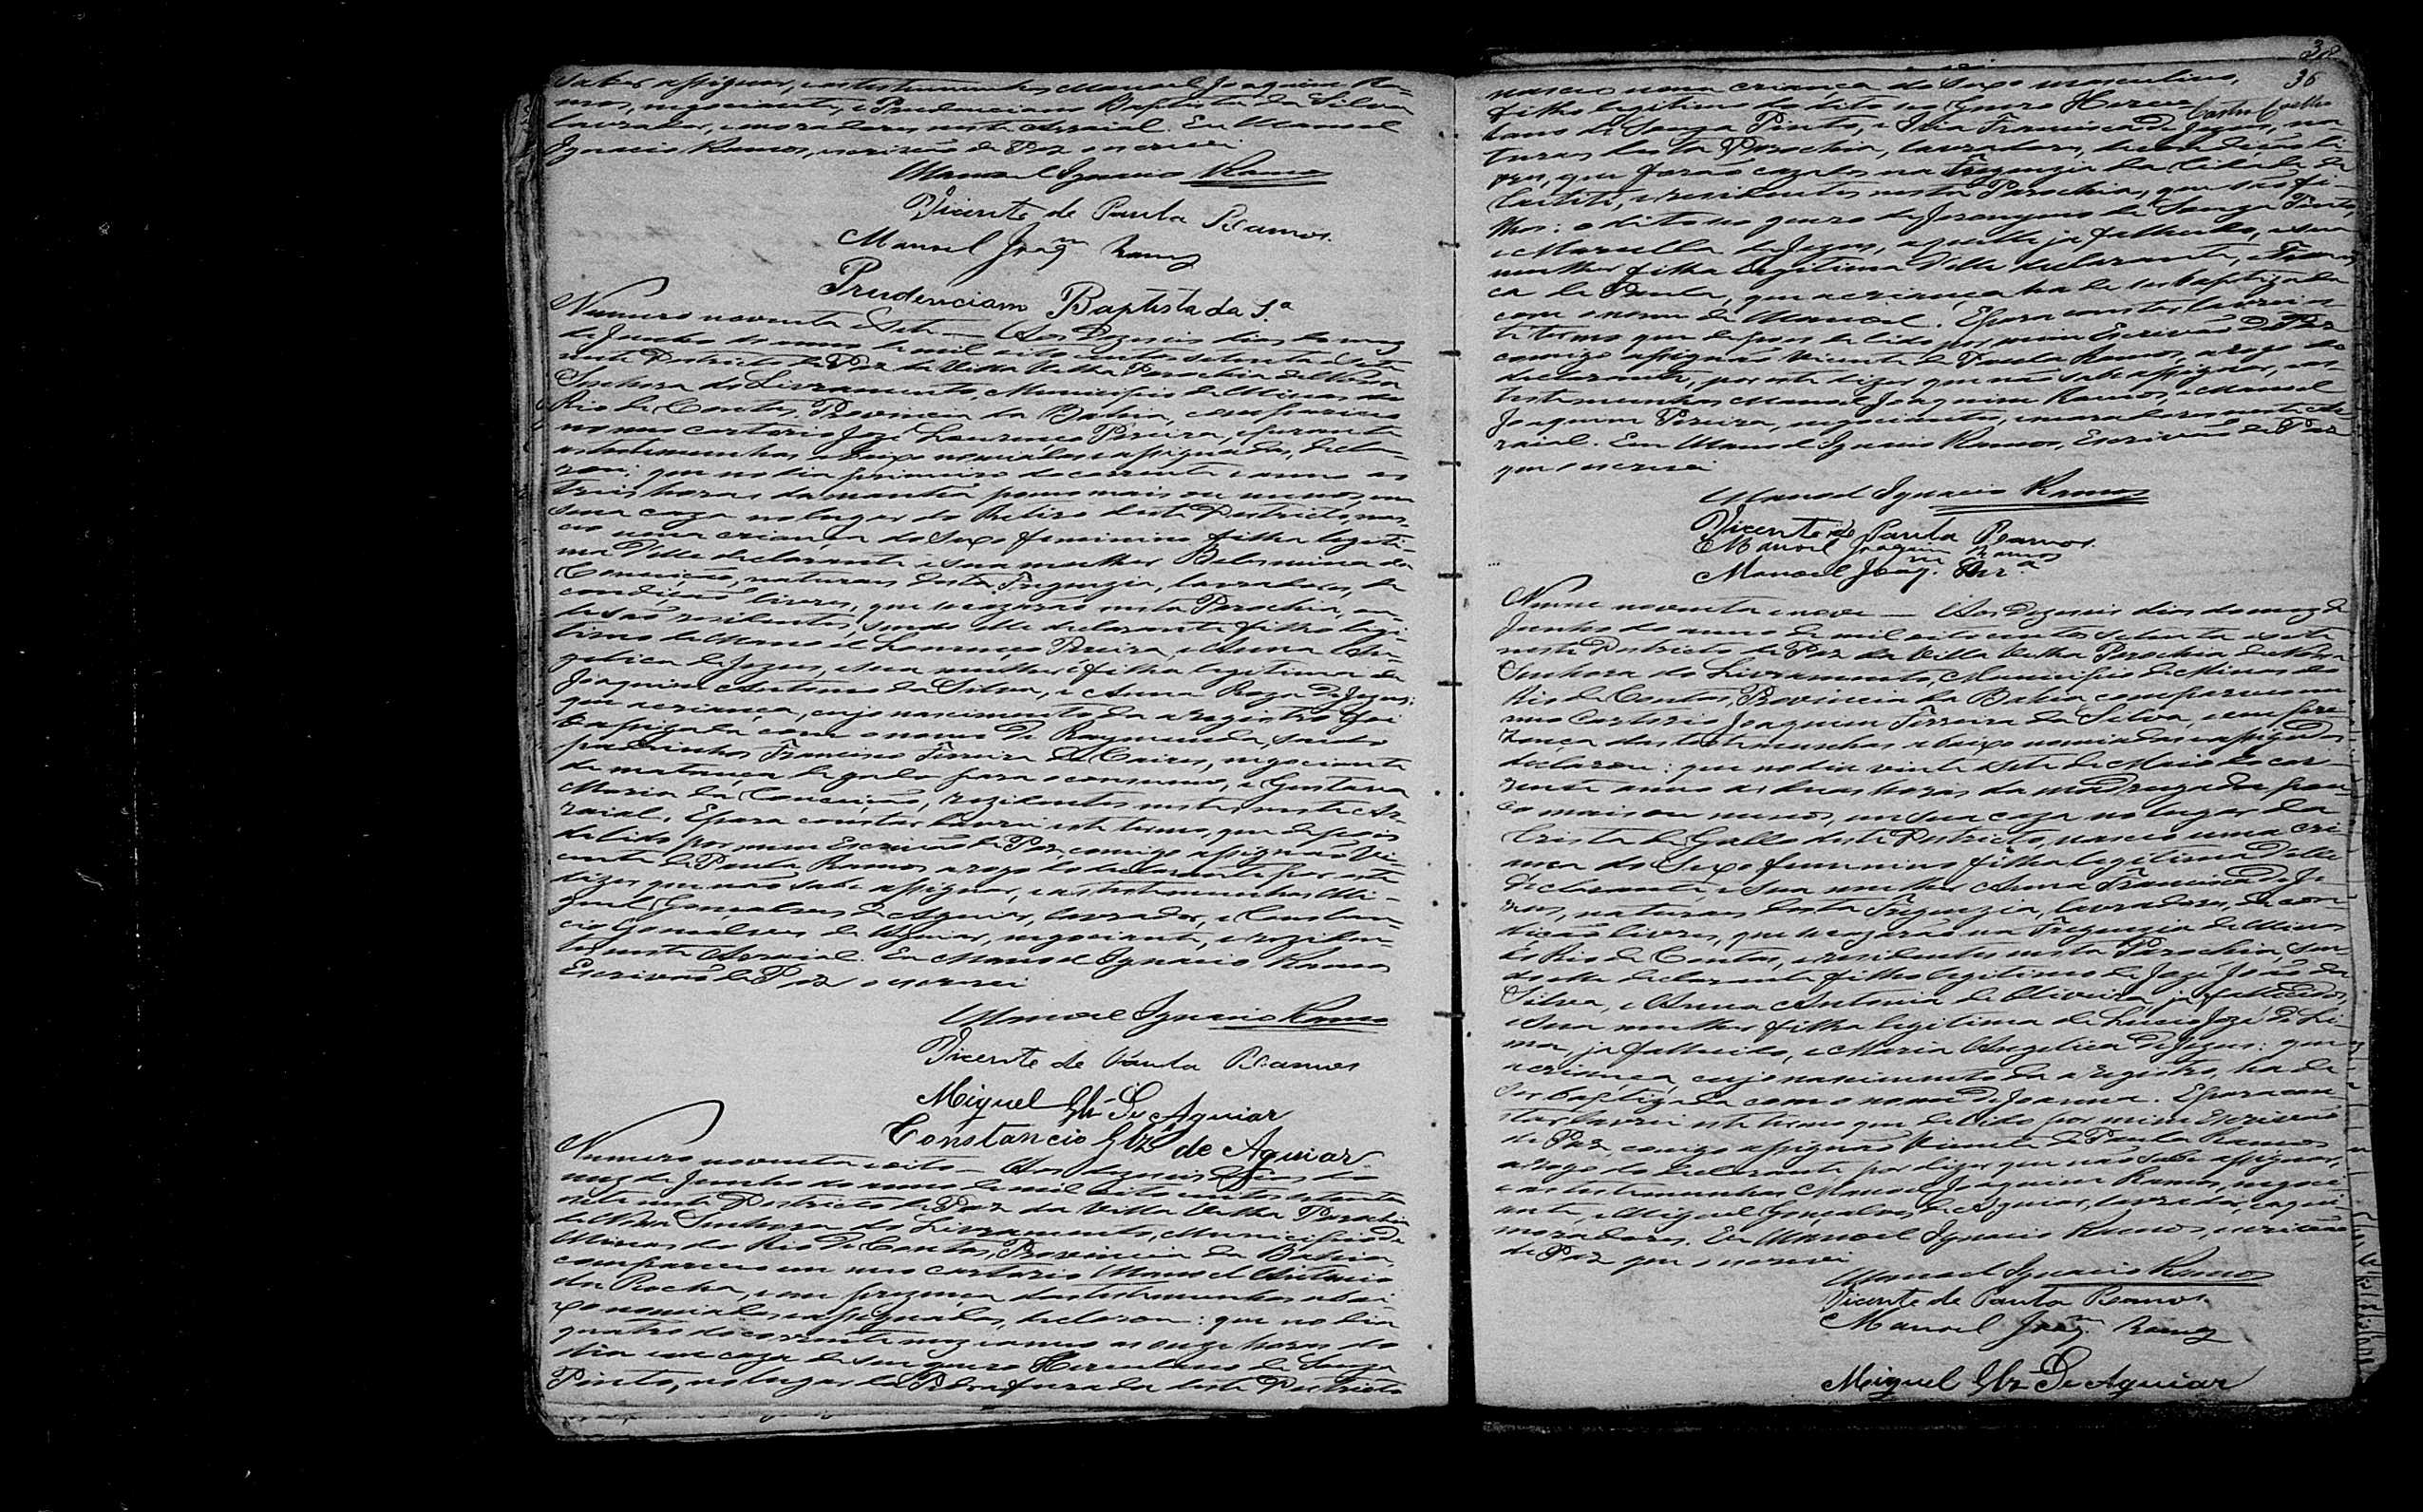 saber assignar, e as testemunhas Manoel Joaquim Ra-
mos, negociante, e Prudenciano Baptista da Silva
lavrador, moradores neste Arraial. Eu Manoel
Ignacio Ramos, escrivão de Paz o escrevi
Manoel Ignacio Ramos
Vicente de Paula Ramos.
Manoel Joaqm Ramos
Prudenciano Baptista da Sa
Numero noventa e sete — Aos Dezeseis dias do mez
de Junho do anno de mil oito centos setenta e sete
neste Districto de Paz da Villa Velha Parochia de Nossa
Senhora do Livramento, Municipio de Minas do
Rio de Contas, Provincia da Bahia, compareceo
no meu cartorio José Lourenço Pereira, e perante
as testemunhas abaixo nomiadas e assignadas, decla-
rou: que no dia primeiro do corrente e anno as
tres horas da manhã pouco mais ou menos, em
sua caza no lugar do Retiro deste Districto, nas-
ceo uma criança do sexo feminino filha legiti-
ma d'elle declarante e sua mulher Belarmina da
Conceição, naturaes desta Freguezia, lavradores, de
condição livres, que se cazarão nesta Parochia, on-
de são residentes, sendo elle declarante filho legi-
timo de Manoel Lourenço Pereira, e Anna An-
gelica de Jezus, e sua mulher é filha legitima de
Joaquim Antonio da Silva, e Anna Roza de Jezus:
que a criança, cujo nascimento da a registro foi
baptizada com o nome de Raymunda, sendo
padrinhos Francisco Ferreira de Caires, negociante
de matança de gado para o consumo, e Gustava
Maria da Conceição, rezidentes nesta neste Ar-
raial. E para constar lavrei este termo, que depois
de lido por mim Escrivão de Paz, comigo assignão Vi-
cente de Paula Ramos a rogo do declarante por este
dizer que não sabe assignar, e as testemunhas Mi-
guel Gonçalves de Aguiar, lavrador, e Constan-
cio Gonçalves de Aguiar, negociante, e reziden-
tes neste Arraial. Eu Manoel Ignacio Ramos
Escrivão de Paz o escrevi
Manoel Ignacio Ramos
Vicente de Paula Ramos
Miguel Glz De Aguiar
Constancio Glz de Aguiar
Numero noventa e oito — Aos dezeseis dias do
mez de Junho do anno de mil oito centos setenta
e sete neste Districto de Paz da Villa Velha Parochia
de Nossa Senhora do Livramento, Municipio de
Minas do Rio de Contas, Provincia da Bahia,
compareceo em meu cartorio Manoel Antonio
da Rocha, e em prezença das testemunhas abai-
xo nomiadas e assignadas, declarou: que no dia
quatro do corrente mez e anno as onze horas do
dia em caza de seu genro Herculano de Souza
Pinto, no lugar da Pedra furada deste Districto
38
36
nasceo uma criança do sexo masculino,
filho legitimo do dito seu genro Hercu
Castro Coelho
lano de Souza Pinto, e Izia Francisca de Jezus, na-
turaes desta Parochia, lavradores, de condição li-
vres, que forão cazados na Freguezia da Cidade de
Caitité, e residentes nesta Parochia, que são fi-
lhos: o dito seu genro de Joaquim de Souza Pinto,
e Marcella de Jezus, aquelle ja fallecido, e sua
mulher filha legitima d'elle declarante, e Francis
ca de Paula, que a criança ha de ser baptizada
com o nome de Manoel. E para constar lavrei es
te termo que depois de lido por mim Escrivão de Paz
comigo assignão Vicente de Paula Ramos a rogo do
declarante, por este dizer que não sabe assignar, e as
testemunhas Manoel Joaquim Ramos, e Manoel
Joaquim Pereira, negociantes, e moradores neste Ar
raial. Eu Manoel Ignacio Ramos, Escrivão de Paz
que o escrevi
Manoel Ignacio Ramos
Vicente de Paula Ramos.
Manoel Joaquim Ramos
Manoel Joaqm Perra
Nume noventa e nove — Aos dezeseis dias do mez de
Junho do anno de mil oito centos setenta e sete
neste Districto de Paz da Villa Velha Parochia de Nossa
Senhora do Livramento, Municipio de Minas do
Rio de Contas, Provincia da Bahia compareceo em
meu Cartorio Joaquim Ferreira da Silva, e em pre-
zença das testemunhas abaixo nomiadas e assignadas
declarou: que no dia vinte e sete de Maio do cor-
rente anno as duas horas da madrugada pou-
co mais ou menos, em sua caza no lugar da
Crista de Gallo deste Districto, nasceo uma cri
ança do sexo feminino filha legitima d'elle
declarante, e sua mulher Anna Francisca de Je-
zus, naturaes desta Freguezia, lavradores, de con-
dição livres, que se cazarão na Freguezia de Minas
do Rio de Contas, e residentes nesta Parochia, sen-
do elle declarante filho legitimo de José João da
Silva, e Anna Antonia de Oliveira, ja fallecidos,
e sua mulher filha legitima de Lucio José de Li-
ma, ja fallecido, e Maria Angelica de Jezus: que
a criança cujo nascimento da a registro, ha de
ser baptizada com o nome de Joanna. E para con-
star lavrei este termo que de lido por mim Escrivão
de Paz, comigo assignão Vicente de Paula Ramos
a rogo do declarante por dizer que não sabe assignar,
e as testemunhas Manoel Joaquim Ramos, negoci-
ante, e Miguel Gonçalves de Aguiar, lavrador, e aqui
moradores. Eu Manoel Ignacio Ramos, escrivão
de Paz que o escrevi
Manoel Ignacio Ramos
Vicente de Paula Ramos.
Manoel Joaqm Ramos
Miguel Glz De Aguiar